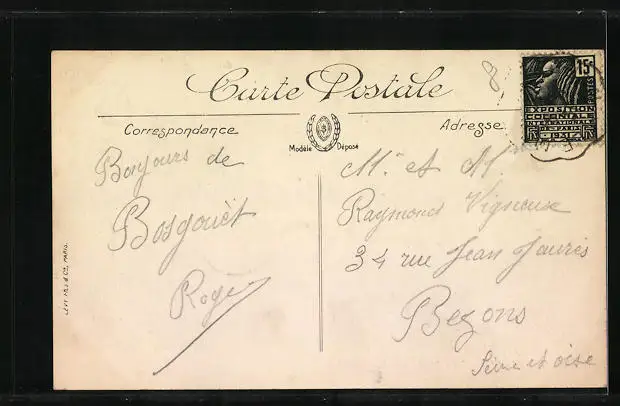 Carte Postale
Correspondance
Modèle Déposé
Adresse
15c
POSTES
EXPOSITION
COLONIALE
INTERNATIONALE
PARIS 1931
RF
Bonjours de
Bosgouët
Roger
Mr et M.
Raymond Vigneux
34 rue Jean Jaurès
Bezons
Seine et oise
LÉVY FILS & Cie, PARIS.